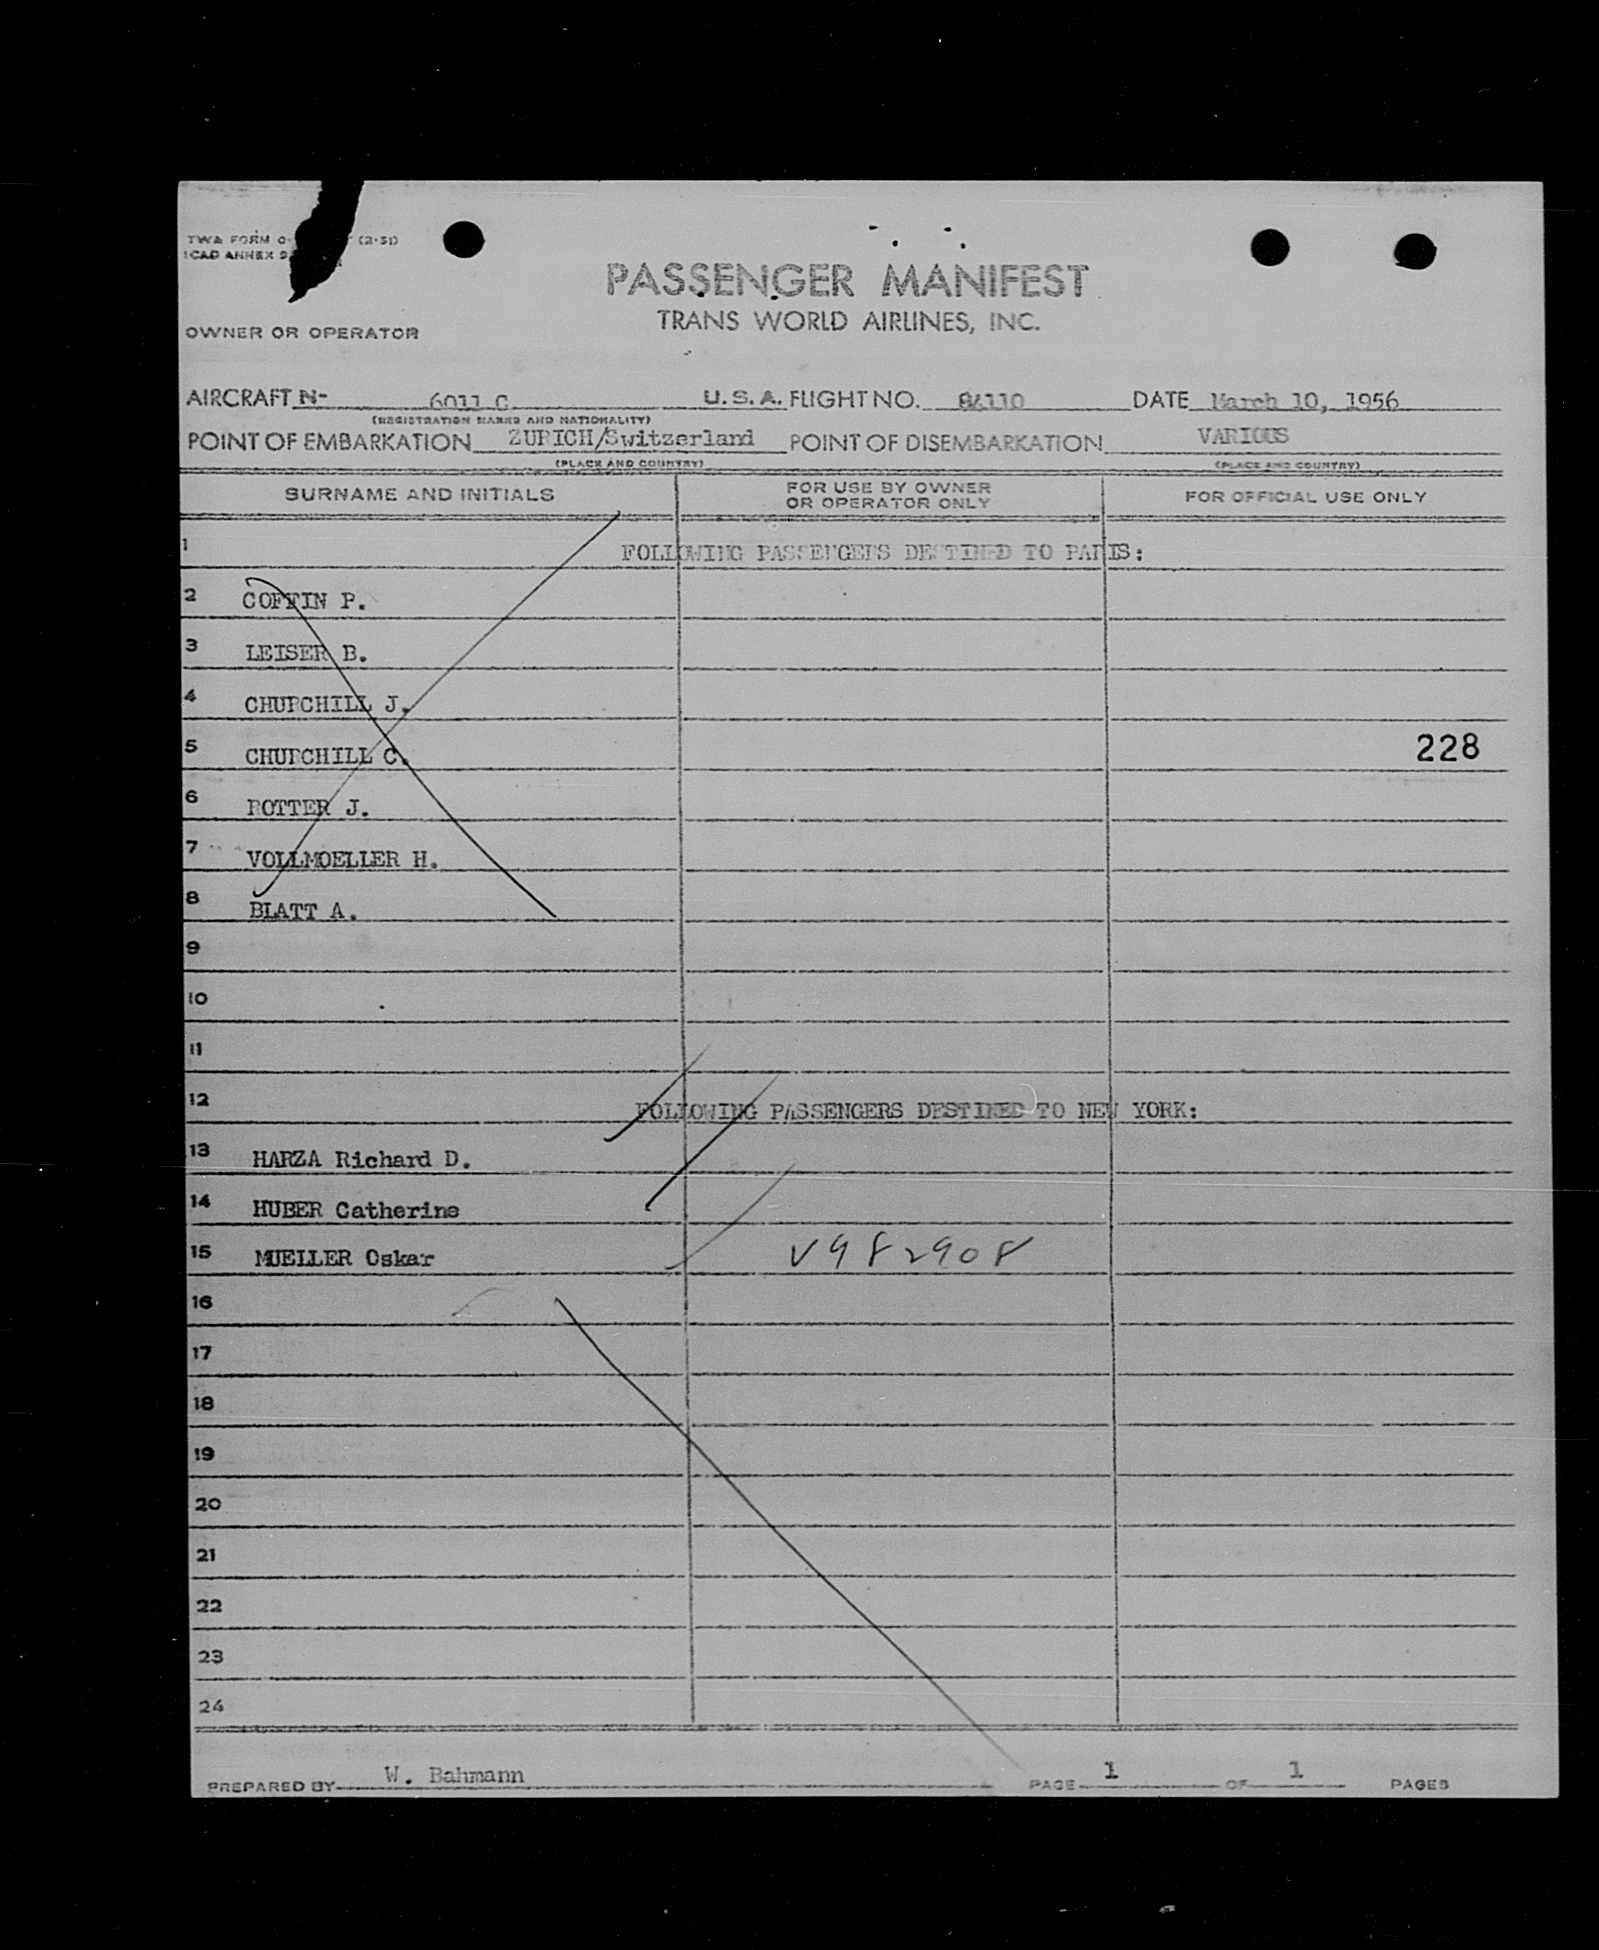 TWA FORM O- (2-51)
ICAO ANNEX 9
PASSENGER MANIFEST
TRANS WORLD AIRLINES, INC.
OWNER OR OPERATOR
AIRCRAFT N- 6011 C U.S.A. FLIGHT NO. DATE March 10, 1956
(REGISTRATION MARKS AND NATIONALITY)
POINT OF EMBARKATION ZURICH/Switzerland POINT OF DISEMBARKATION VARIOUS
(PLACE AND COUNTRY) (PLACE AND COUNTRY)
SURNAME AND INITIALS FOR USE BY OWNER OR OPERATOR ONLY FOR OFFICIAL USE ONLY
1 FOLLOWING PASSENGERS DESTINED TO PARIS:
2 COFFIN P.
3 LEISER B.
4 CHURCHILL J.
5 CHURCHILL C. 228
6 J.
7 VOLLMOELLER H.
8 BLATT A.
9
10
11
12 FOLLOWING PASSENGERS DESTINED TO NEW YORK:
13 HARZA Richard D.
14 HUBER Catherine
15 MUELLER Oskar V982908
16
17
18
19
20
21
22
23
24
PREPARED BY W. Bahmann PAGE 1 OF 1 PAGES